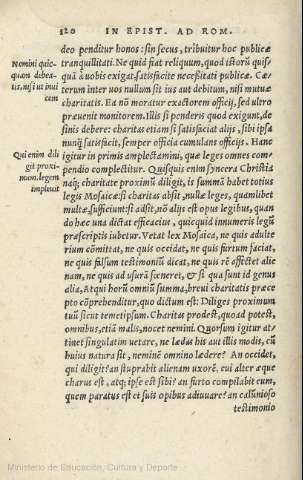 120 IN EPIST. AD ROM.
deo penditur honos: sin secus, tribuitur hoc publicæ
Nemini quic- tranquillitati. Ne quid fiat reliquum, quod istorū quis-
quam debea- quā à uobis exigat. satisfacite necessitati publicæ. Cæ-
tis, nisi ut inui terum inter uos nullum sit ius aut debitum, nisi mutuæ
cem charitatis. Ea nō moratur exactorem officij, sed ultro
præuenit monitorem. Illis si penderis quod exigunt, de-
sinis debere: charitas etiam si satisfaciat alijs, sibi ipsa
nunq̃ satisfacit, semper officia cumulans officijs. Hanc
Qui enim dili igitur in primis amplectamini, quæ leges omnes com-
git proxi- pendio complectitur. Quisquis enim syncera Christia
mum. legem naq; charitate proximū diligit, is summā habet totius
impleuit legis Mosaicæ: si charitas absit, nullæ leges, quamlibet
multæ, sufficiunt: si adsit, nō alijs est opus legibus, quan
do hæc una dictat efficacius, quicquid innumeris legū
præscriptis iubetur. Vetat lex Mosaica, ne quis adulte
rium cōmittat, ne quis occidat, ne quis furtum faciat,
ne quis falsum testimoniū dicat, ne quis rē affectet alie
nam, ne quis ad usurā fœneret, & si qua sunt id genus
alia. Atqui horū omniū summa, breui charitatis præce
pto cōprehenditur, quo dictum est: Diliges proximum
tuū sicut temetipsum. Charitas prodest, quoad potest,
omnibus, etiā malis, nocet nemini. Quorsum igitur at-
tinet singulatim uetare, ne lædas his aut illis modis, cū
huius natura sit, neminē omnino lædere? An occidet,
qui diligit? an stuprabit alienam uxorē, cui alter æque
charus est, atq; ipse est sibi? an furto compilabit eum,
quem paratus est et suis opibus adiuuare? an calūnioso
testimonio
Ministerio de Educación, Cultura y Deporte